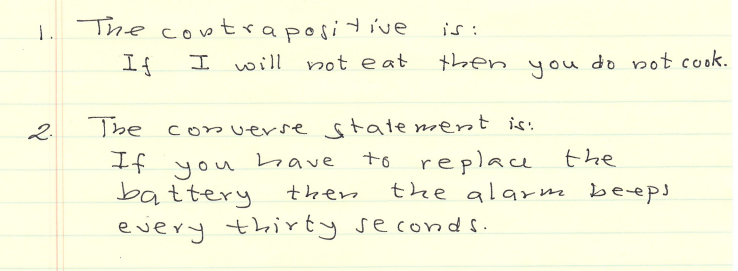 1. The contrapositive is:
If I will not eat then you do not cook.
2. The converse statement is:
If you have to replace the
battery then the alarm beeps
every thirty seconds.